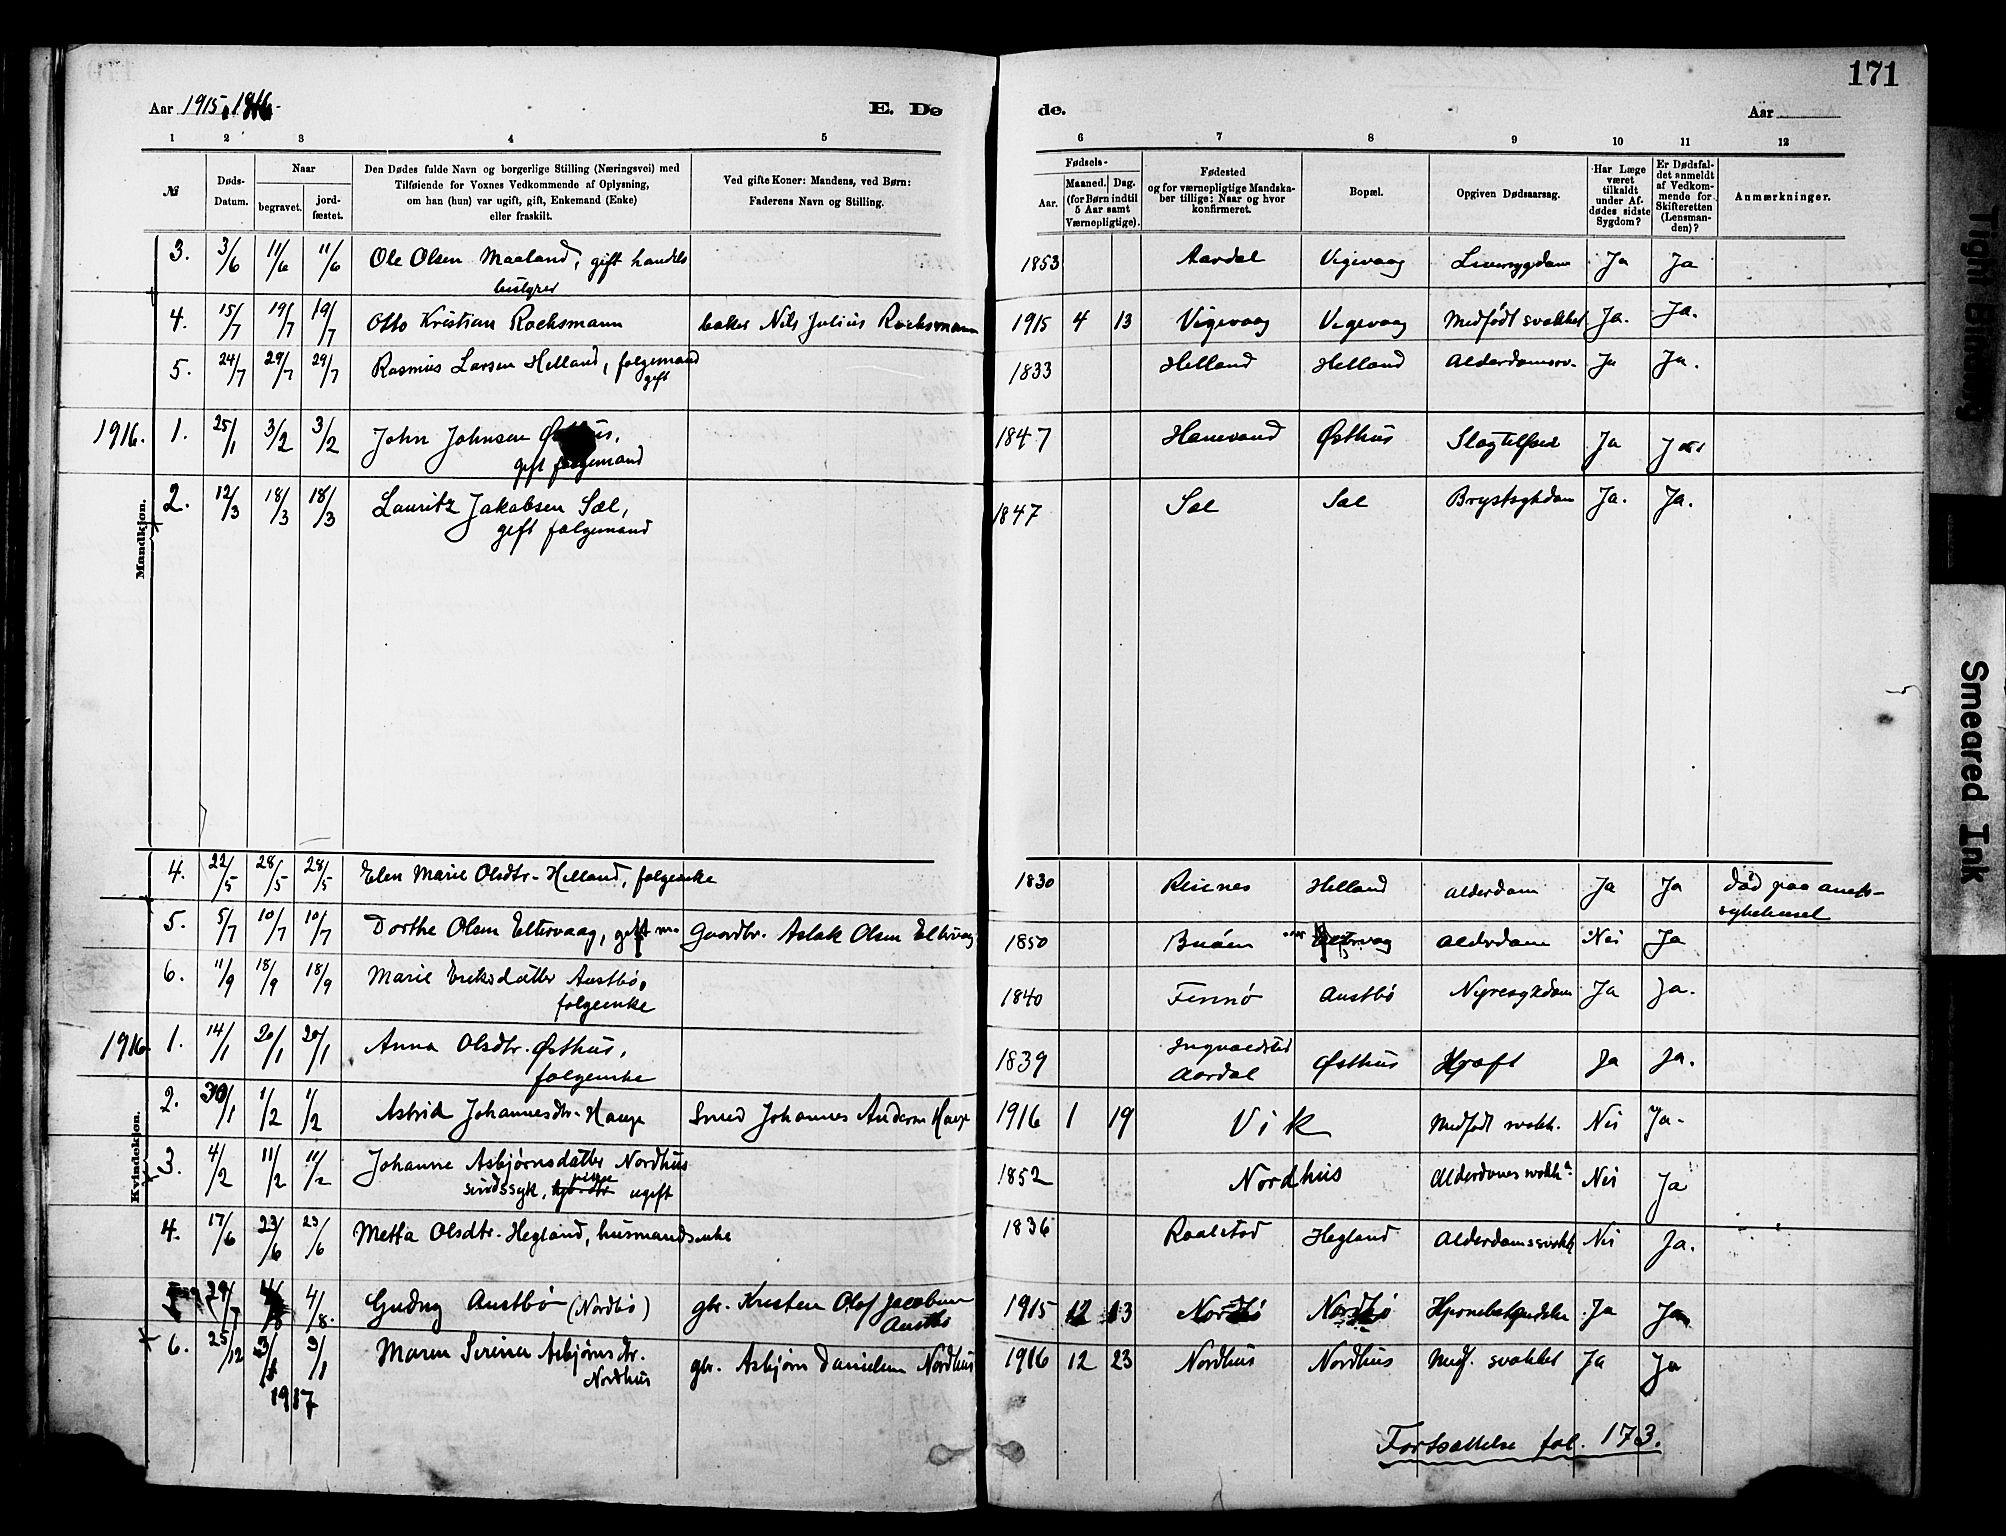 171
Aar 1915, 1916.
E. Dø
de.
Aar
1 2 3 4 5 6 7 8 9 10 11 12
№
Døds-
Datum.
Naar
begravet.
jord-
fæstet.
Den Dødes fulde Navn og borgerlige Stilling (Næringsvei) med
Tilføiende for Voxnes Vedkommende af Oplysning,
om han (hun) var ugift, gift, Enkemand (Enke)
eller fraskilt.
Ved gifte Koner: Mandens, ved Børn:
Faderens Navn og Stilling.
Fødsels-
Aar.
Maaned. Dag.
(for Børn indtil
5 Aar samt
Værnepligtige).
Fødested
og for værnepligtige Mandska-
ber tillige: Naar og hvor
konfirmeret.
Bopæl.
Opgiven Dødsaarsag.
Har Læge
været
tilkaldt
under Af-
dødes sidste
Sygdom?
Er Dødsfal-
det anmeldt
af Vedkom-
mende for
Skifteretten
(Lensman-
den)?
Anmærkninger.
Mandkjøn.
3. 3/6 11/6 11/6 Ole Olsen Maaland, gift handels 1853 Aardal Vigevaag Leversygdom Ja Ja
bestyrer
4. 15/7 19/7 19/7 Otto Kristian Rocksmann baker Nils Julius Rocksmann 1915 4 13 Vigevaag Vigevaag Medfødt svakhet Ja. Ja.
5. 24/7 29/7 29/7 Rasmus Larsen Helland, følgemand 1833 Helland Helland Alderdomssv. Ja Ja.
gift
1916. 1. 25/1 3/2 3/2 John Johnsen Østhus, 1847 Hanevand Østhus Slagtilfæld Ja Ja
gift følgemand
2. 12/3 18/3 18/3 Lauritz Jakobsen Sæl, 1847 Sæl Sæl Brystsykdom Ja. Ja.
gift følgemand
Kvindekjøn.
4. 22/5 28/5 28/5 Elen Marie Olsdtr. Helland, følgeenke 1830 Reienes Helland Alderdom Ja Ja Død paa amts-
sykehuset
5. 5/7 10/7 10/7 Dorthe Olsen Eltervaag, gift m. Gaardbr. Aslak Olsen Eltervaag 1850 Buøen Eltervag Alderdom Nei Ja
6. 11/9 18/9 18/9 Marie Eriksdatter Austbø, 1840 Finnø Austbø Nyresykdom Ja Ja.
følgeenke
1916. 1. 14/1 20/1 20/1 Anna Olsdtr. Østhus, 1839 Ingvaldstad Aardal Østhus Kræft Ja Ja.
følgeenke
2. 30/1 1/2 1/2 Astrid Johannesdtr. Hauge Smed Johannes Andersen Hauge 1916 1 19 Vik Medfødt svakh. Nei Ja.
3. 4/2 11/2 11/2 Johanne Asbjørnsdatter Nordhus 1852 Nordhus Alderdomssvakh. Nei Ja
sindssyk, pige ugift
4. 17/6 23/6 23/6 Metta Olsdtr. Hegland, husmandsenke 1836 Raalstad Hegland Alderdomssvakh. Nei Ja.
29/7 4/8 4/8. Gudny Austbø (Nordbø) gbr. Kristen Olaf Jacobsen 1915 12 13 Nordbø Nordbø Hjernebetændelse Ja Ja
Austbø
6. 25/12 3/1 3/1 Maren Serina Asbjørnsdtr. gbr. Asbjørn Danielsen Nordhus 1916 12 23 Nordhus Nordhus Medf. svakhet Ja Ja
Nordhus
1917
Fortsættelse fol. 173.
Tight Binding
Smeared Ink